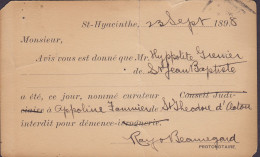 St-Hyacinthe, 23 Sept 1898
Monsieur,
Avis vous est donné que Mr. Hyppolite Grenier
de St Jean Baptiste
a été, ce jour, nommé curateur - Conseil Judi-
ciaire à Appoline Fournier St Théodore d'Acton
interdit pour démence - ivrognerie.
Roy & Beauregard
PROTONOTAIRE